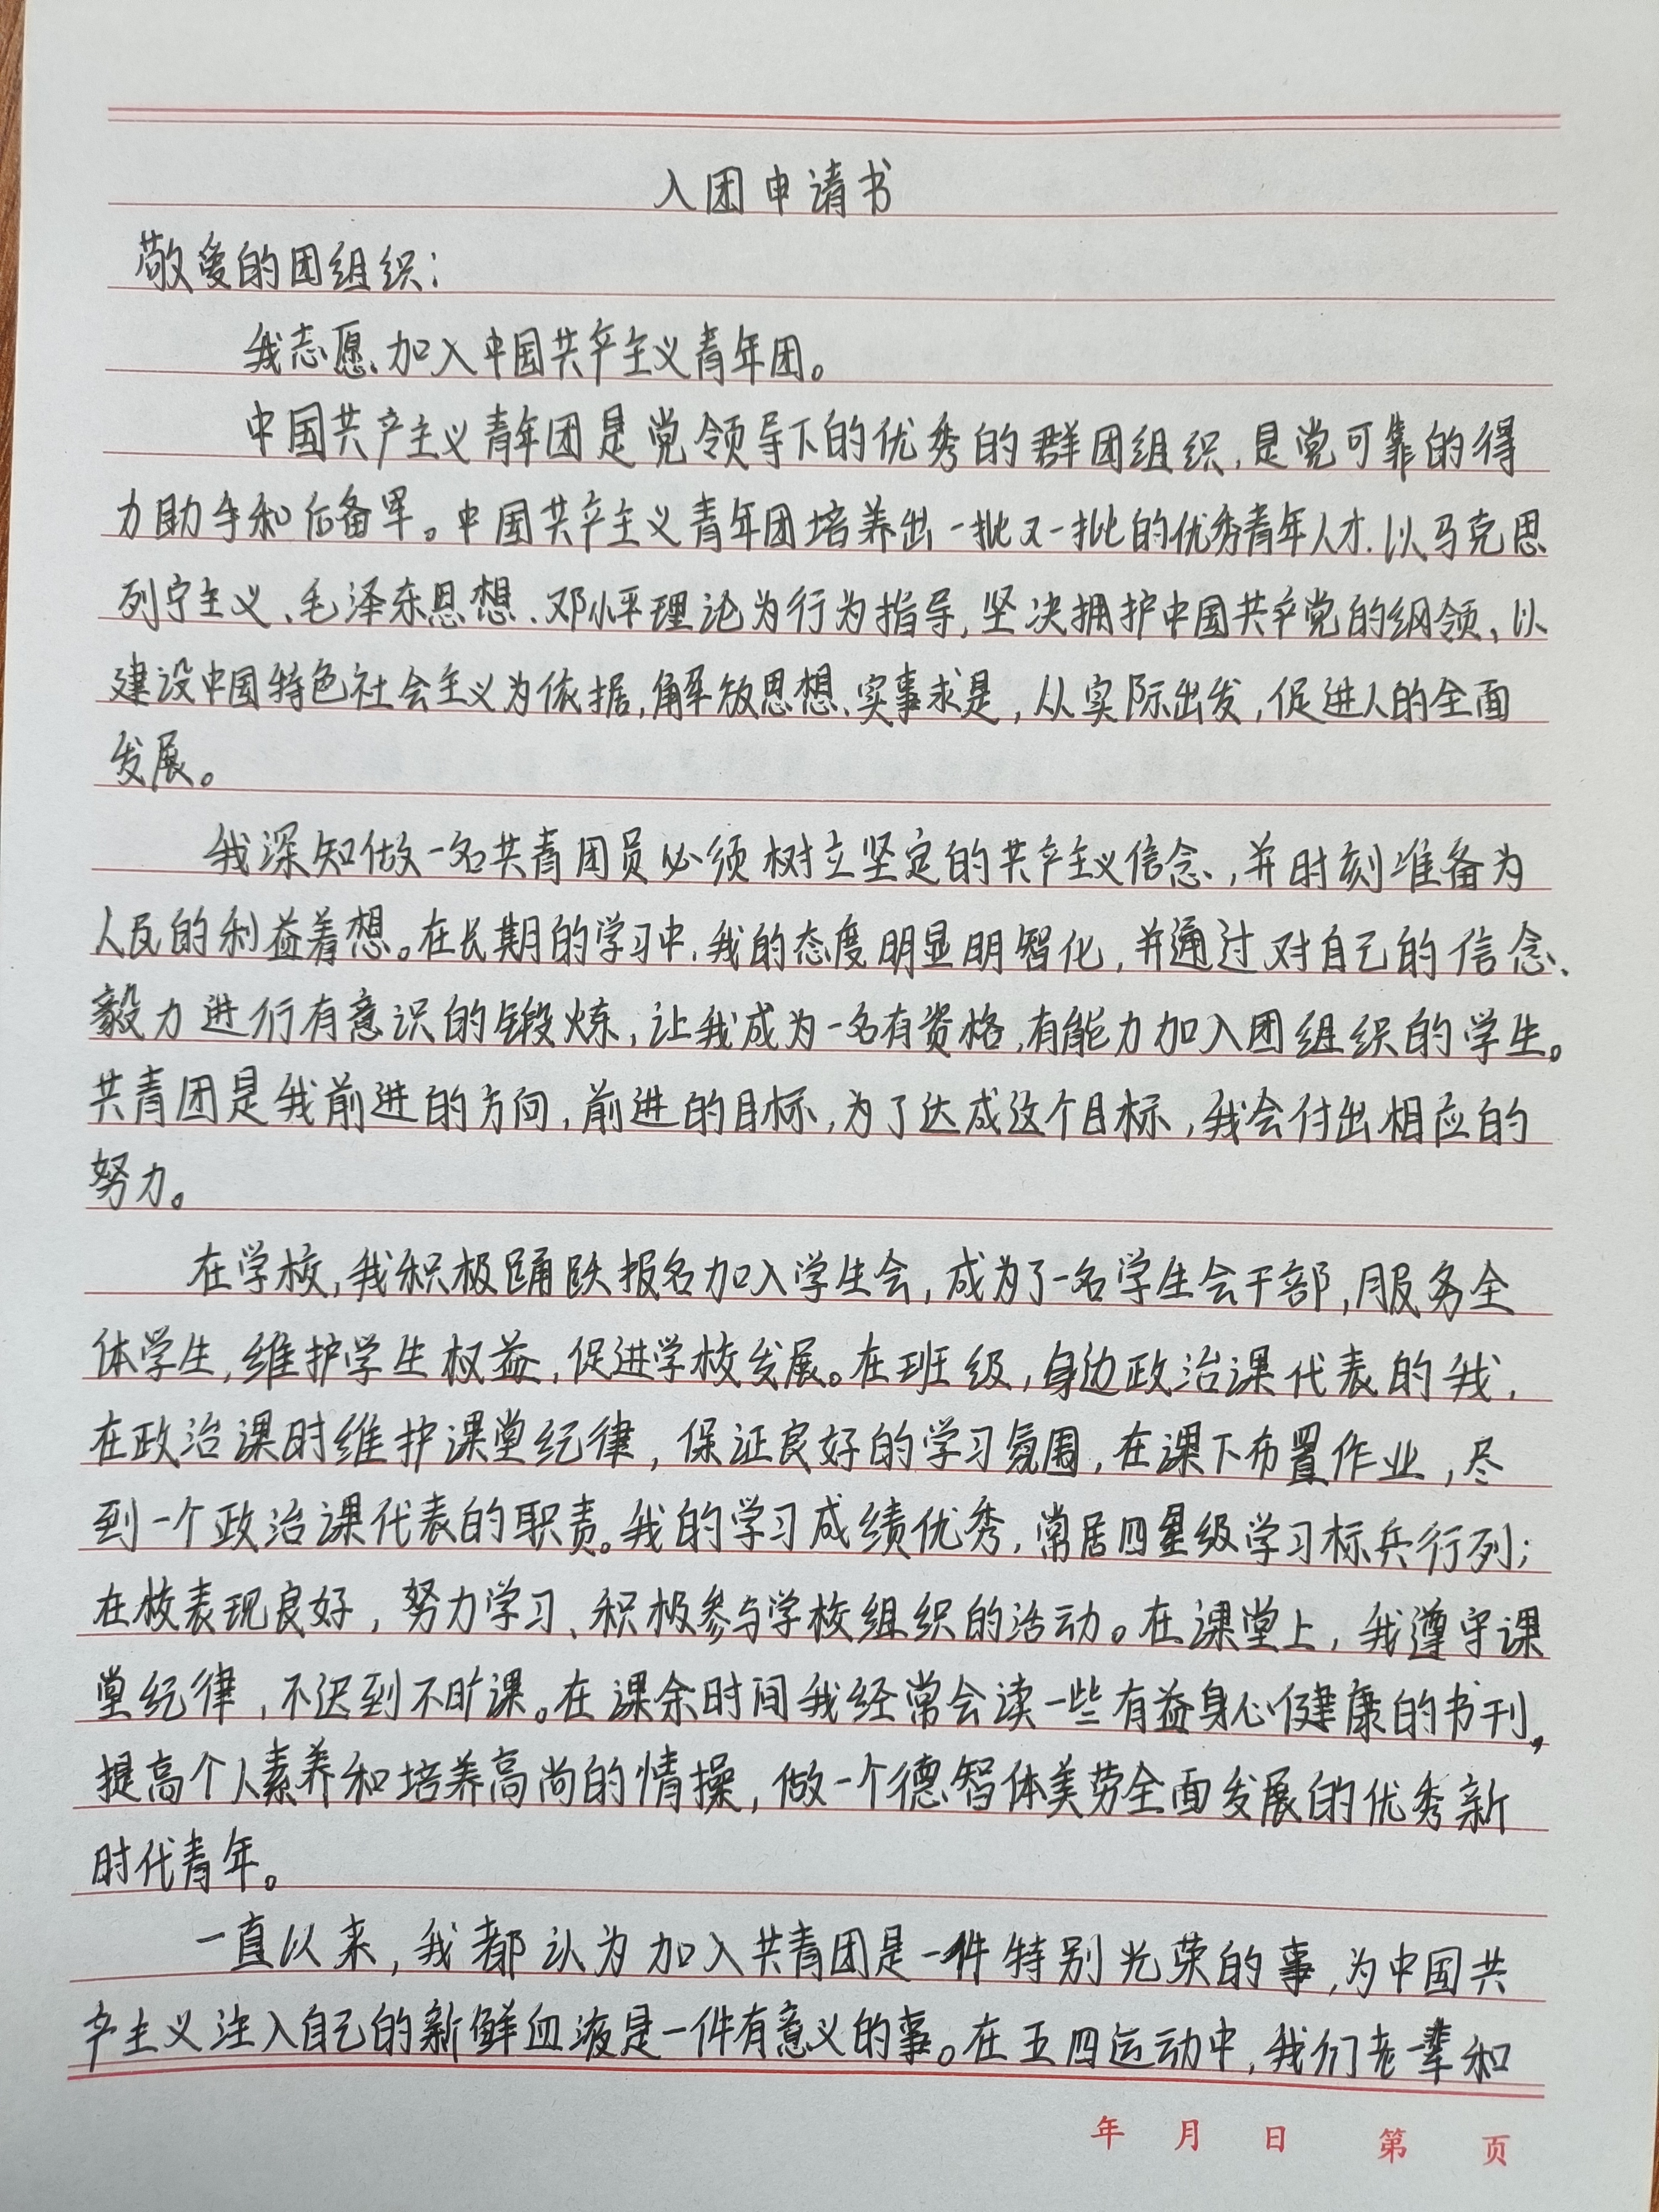 入团申请书
敬爱的团组织：
我志愿加入中国共产主义青年团。
中国共产主义青年团是党领导下的优秀的群团组织，是党可靠的得
力助手和后备军。中国共产主义青年团培养出一批又一批的优秀青年人才，以马克思
列宁主义、毛泽东思想、邓小平理论为行为指导，坚决拥护中国共产党的纲领，以
建设中国特色社会主义为依据，解放思想、实事求是，从实际出发，促进人的全面
发展。
我深知做一名共青团员必须树立坚定的共产主义信念，并时刻准备为
人民的利益着想。在长期的学习中，我的态度明显明智化，并通过对自己的信念、
毅力进行有意识的锻炼，让我成为一名有资格，有能力加入团组织的学生。
共青团是我前进的方向，前进的目标，为了达成这个目标，我会付出相应的
努力。
在学校，我积极踊跃报名加入学生会，成为了一名学生会干部，服务全
体学生，维护学生权益，促进学校发展。在班级，身边政治课代表的我，
在政治课时维护课堂纪律，保证良好的学习氛围，在课下布置作业，尽
到一个政治课代表的职责。我的学习成绩优秀，常居四星级学习标兵行列；
在校表现良好，努力学习、积极参与学校组织的活动。在课堂上，我遵守课
堂纪律，不迟到不旷课。在课余时间我经常会读一些有益身心健康的书刊，
提高个人素养和培养高尚的情操，做一个德智体美劳全面发展的优秀新
时代青年。
一直以来，我都认为加入共青团是一件特别光荣的事，为中国共
产主义注入自己的新鲜血液是一件有意义的事。在五四运动中，我们老一辈和
年 月 日 第 页